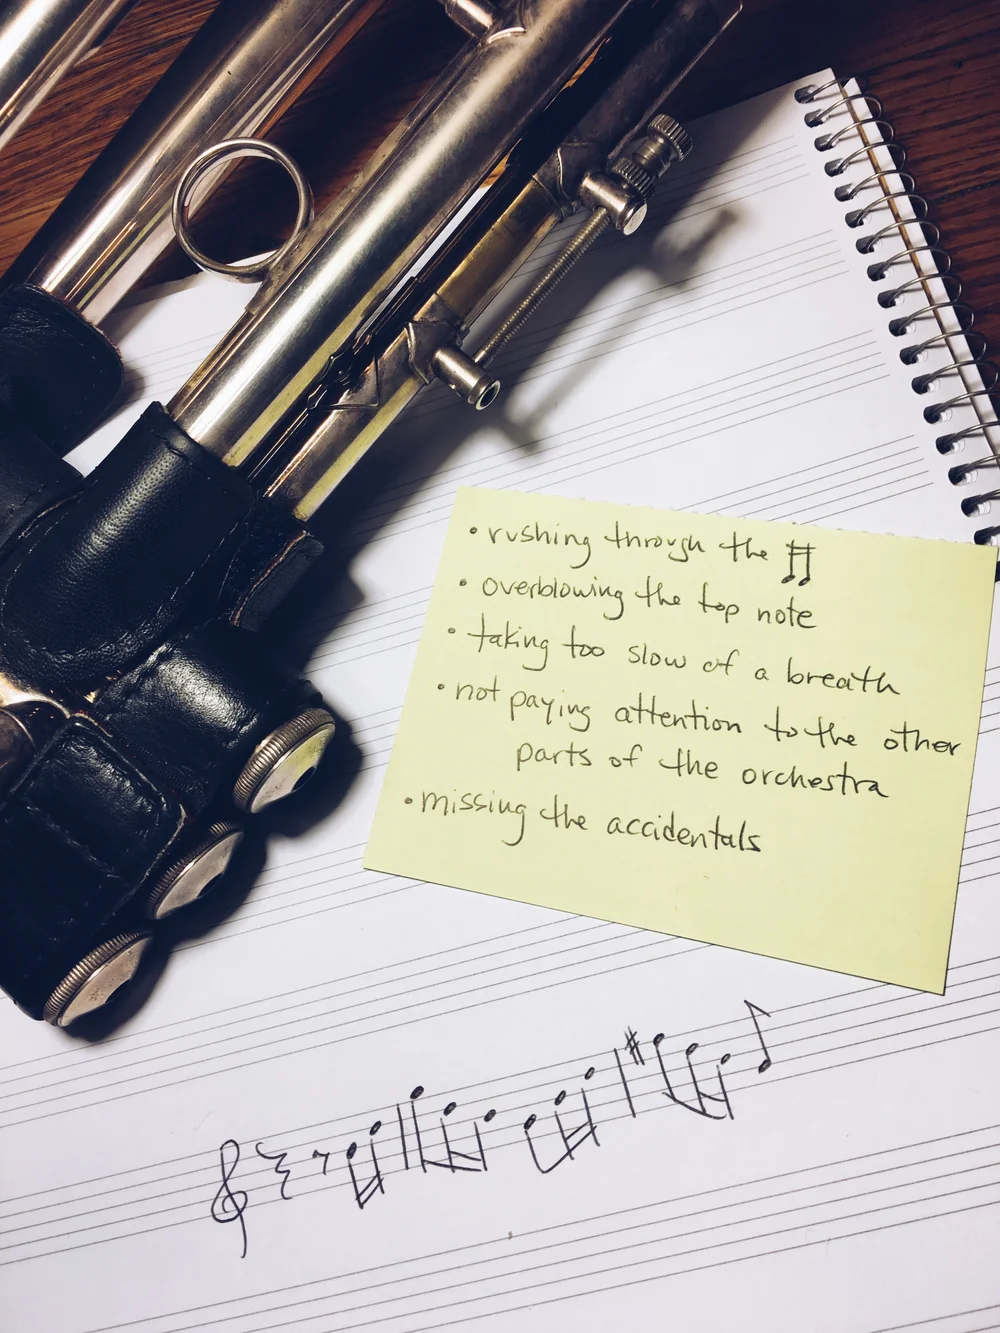 • rushing through the ♬
• overblowing the top note
• taking too slow of a breath
• not paying attention to the other
parts of the orchestra
• missing the accidentals